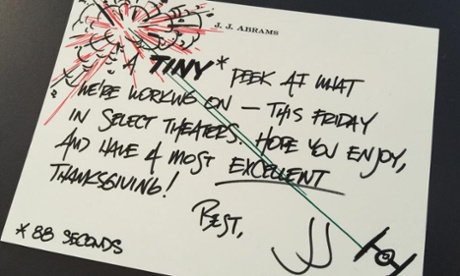 J. J. ABRAMS
A TINY* PEEK AT WHAT
WE'RE WORKING ON — THIS FRIDAY
IN SELECT THEATERS. HOPE YOU ENJOY,
AND HAVE A MOST EXCELLENT
THANKSGIVING!
BEST,
JJ
* 88 SECONDS